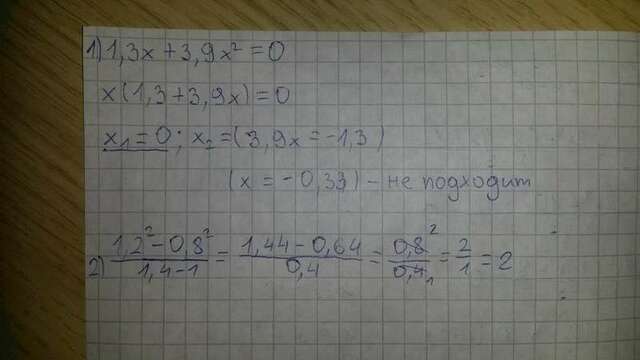 1) 1,3x + 3,9x² = 0
x(1,3 + 3,9x) = 0
x₁ = 0; x₂ = (3,9x = -1,3)
(x = -0,33) - не подходит
2) (1,2² - 0,8²)/(1,4 - 1) = (1,44 - 0,64)/0,4 = 0,8²/0,4₁ = 2/1 = 2